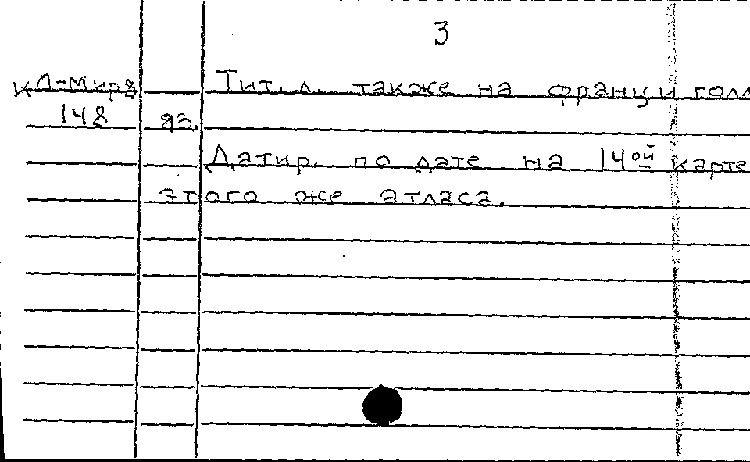 3
К Л-Мира Тит. л. также на франц и голл
148 яз.
Датир. по дате на 14ой карте
этого же атласа.